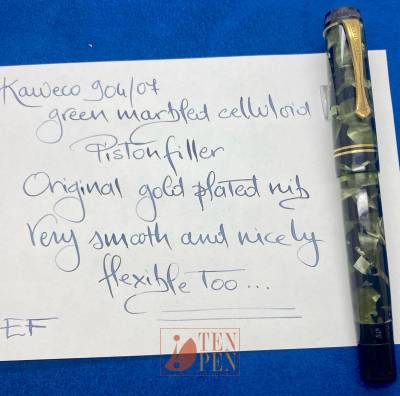 Kaweco 904/07
green marbled celluloid
Pistonfiller
Original gold plated nib
Very smooth and nicely
flexible Too...
EF
TEN
PEN